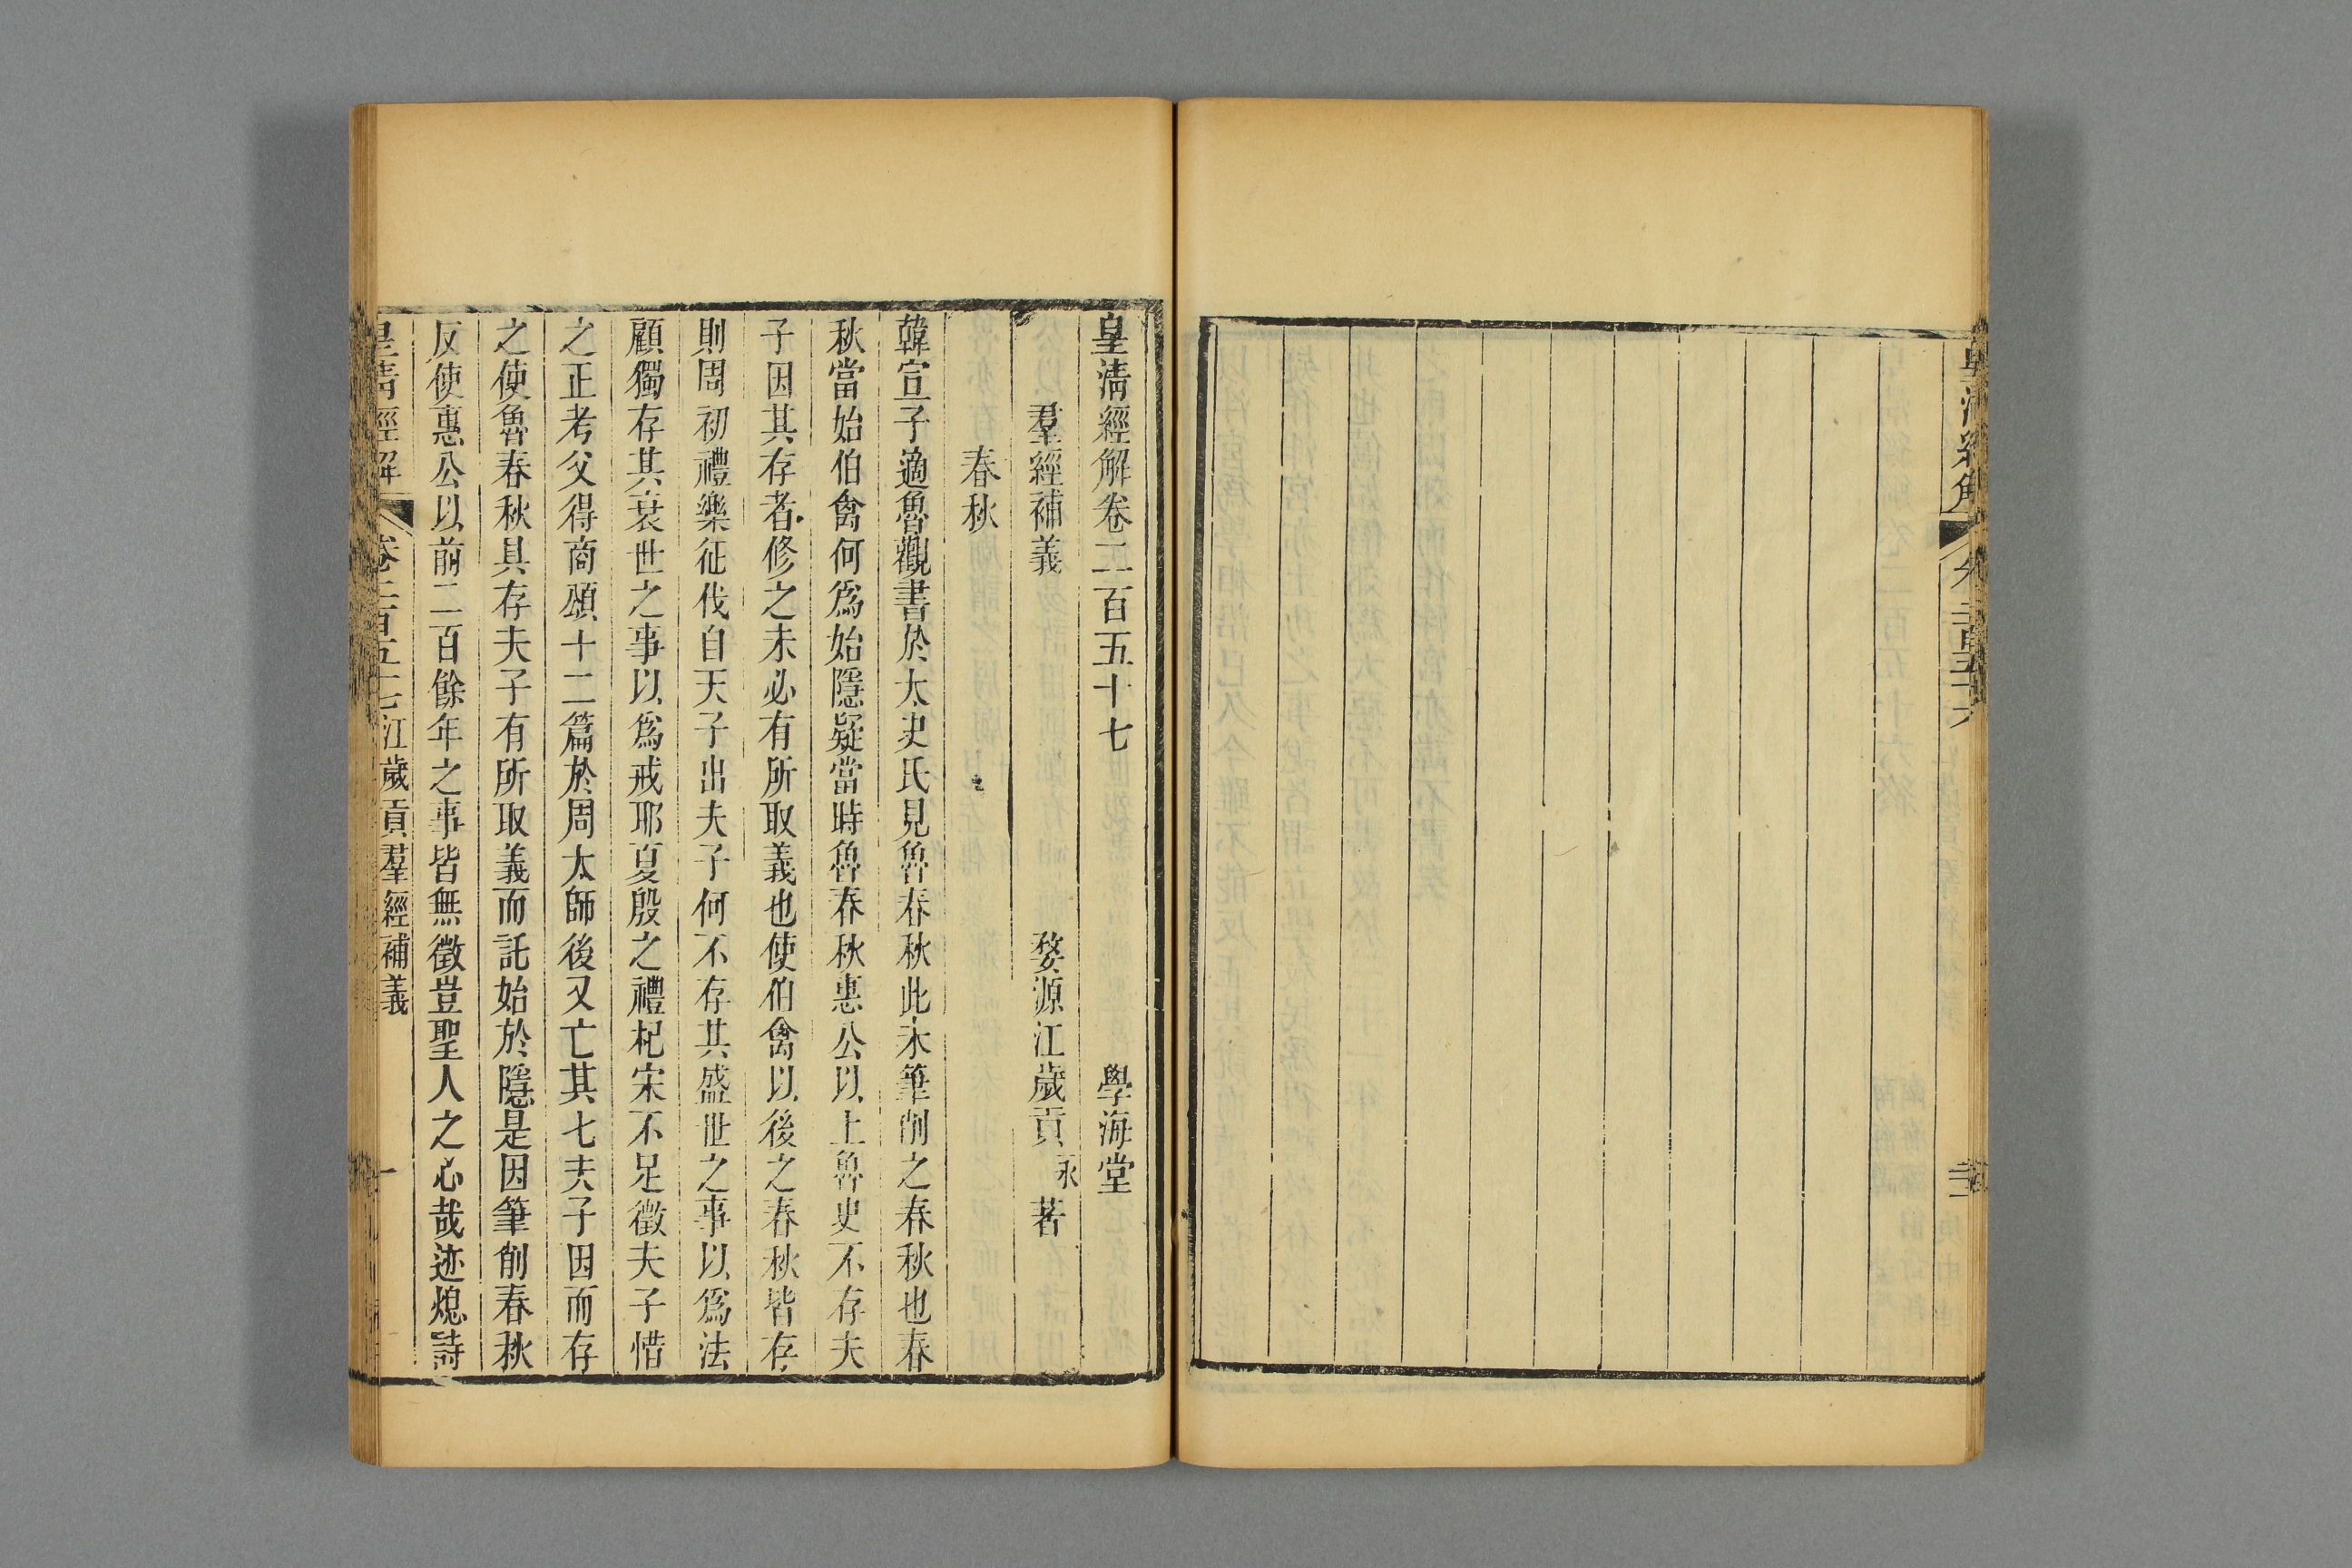 皇清經解卷二百五十七 學海堂
羣經補義 婺源江歲貢永著
春秋
韓宣子適魯觀書於太史氏見魯春秋此未筆削之春秋也春
秋當始伯禽何爲始隱疑當時魯春秋惠公以上魯史不存夫
子因其存者修之未必有所取義也使伯禽以後之春秋皆存
則周初禮樂征伐自天子出夫子何不存其盛世之事以爲法
顧獨存其衰世之事以爲戒耶夏殷之禮杞宋不足徵夫子惜
之正考父得商頌十二篇於周太師後又亡其七夫子因而存
之使魯春秋具存夫子有所取義而託始於隱是因筆削春秋
反使惠公以前二百餘年之事皆無徵豈聖人之心哉迹熄詩
皇清經解 卷二百五十七 江歲貢羣經補義 一